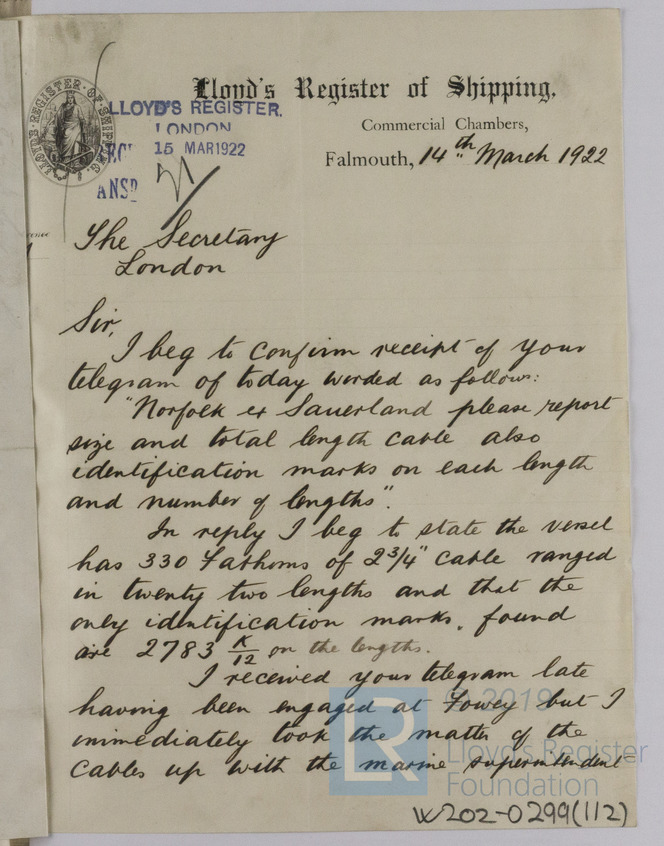 Lloyd's Register of Shipping,
Commercial Chambers,
Falmouth, 14th March 1922
LLOYD'S REGISTER OF SHIPPING.
LLOYD'S REGISTER.
LONDON
15 MAR 1922
ANSD
The Secretary
London
Sir,
I beg to confirm receipt of your
telegram of today worded as follows:
"Norfolk ex Sauerland please report
size and total length cable also
identification marks on each length
and number of lengths".
In reply I beg to state the vessel
has 330 Fathoms of 2 3/4" cable ranged
in twenty two lengths and that the
only identification marks, found
are 2783 K/12 on the lengths.
I received your telegram late
having been engaged at Fowey but I
immediately took the matter of the
cables up with the marine superintendent
© 2019
LR
Lloyd's Register
Foundation
W202-0299(112)